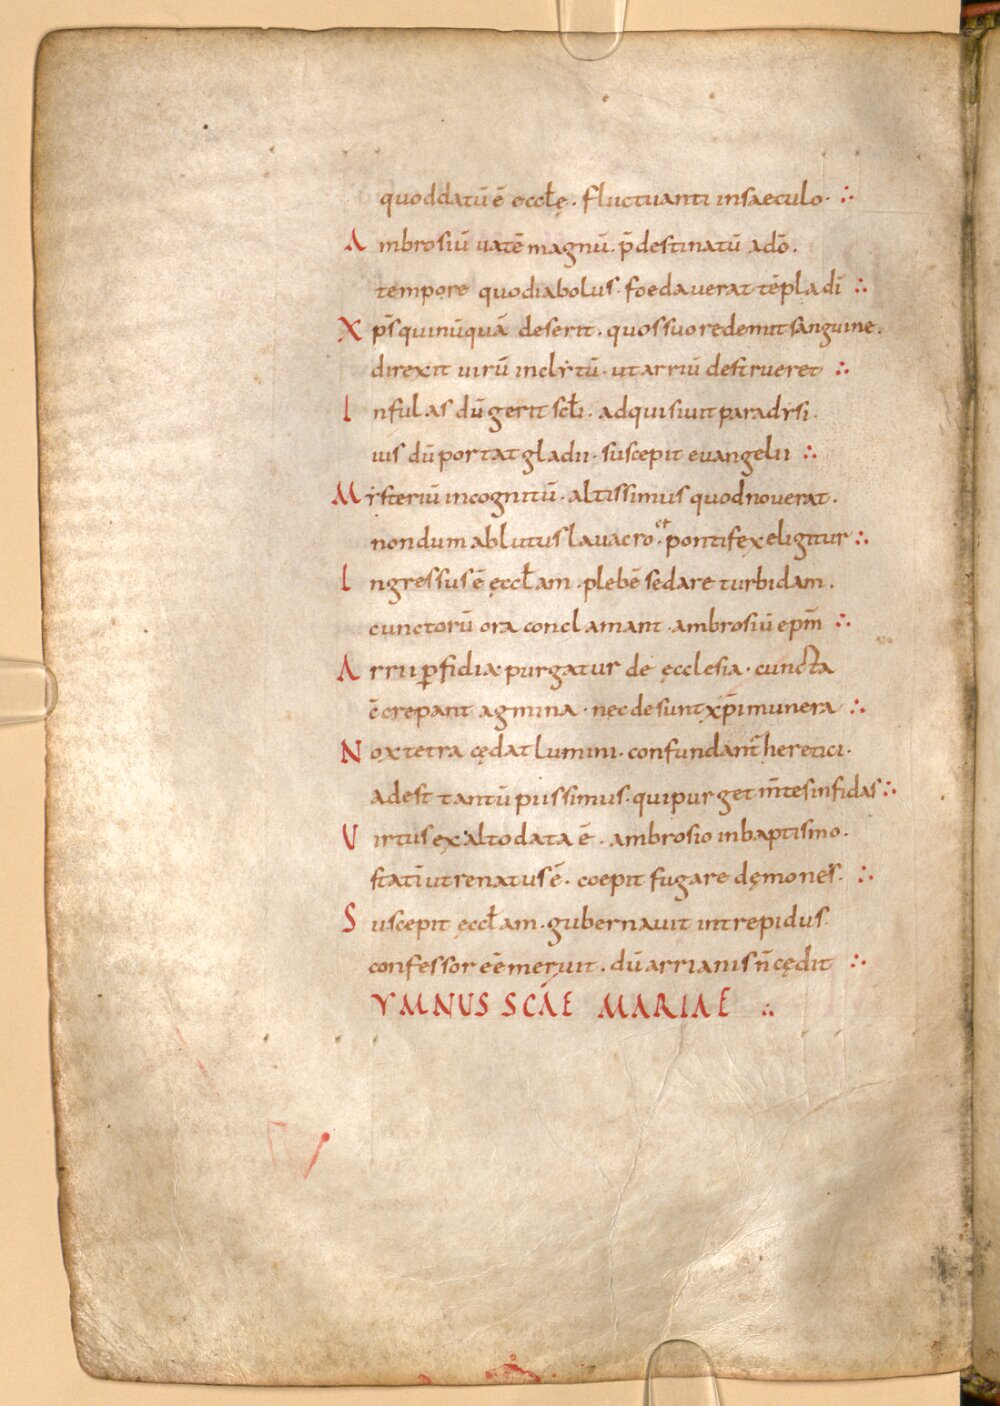 quoddatū ē eccłę . fluctuanti insaeculo · ∴
Ambrosiū vatē magnū . p̄destinatū adō .
tempore quodiabolus · foedaverat tēpla dī ∴
Xp̄s quinūquā deserit . quossuo redemit sanguine .
direxit virū inclytū · utarriū destrueret ∴
Infulas dū gerit scłi . adquisivit paradysi .
vis dū portat gladii · suscepit evangelii ∴
Mysteriū incognitū · altissimus quodnoverat .
nondum ablutus lavacro · et pontifex eligitur ∴
Ingressus ē ęccłam . plebē sedare turbidam .
cunctorū ora conclamant · ambrosiū epm̄ ∴
Arrii ꝑfidia purgatur de ęcclesia · cuncta
c̄crepant agmina · nęc desunt xp̄i munera ∴
Nox tetra cędat lumini · confundant̄ heretici .
adest tantū piissimus · quipurget m̄tes infidas ∴
Virtus exalto data ē . ambrosio inbaptismo .
statī ut renatus ē . coepit fugare dęmones . ∴
Suscepit ęccłam . gubernavit intrepidus .
confessor eē meruit . dū arrianis n̄ cędit ∴
YMNUS SCĀE MARIAE ∴